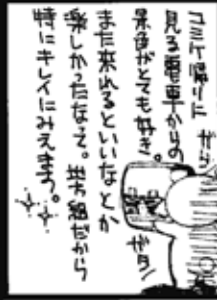 コミケ帰りに
見る電車からの
景色がとても好き。
また来れるといいなとか
楽しかったなって。地方組だから
特にキレイにみえます。
ガタン